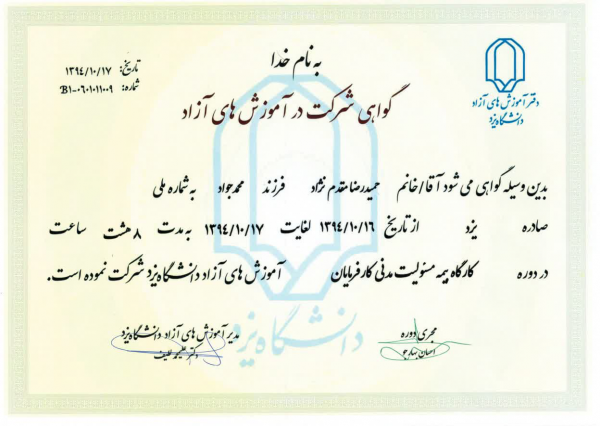 به نام خدا
تاریخ: ۱۳۹۴/۱۰/۱۷
شماره: B1-۰۶۰۱۰۱۱۰۰۹
گواهی شرکت در آموزش های آزاد
دفتر آموزش های آزاد
دانشگاه یزد
بدین وسیله گواهی می شود آقا/خانم حمیدرضا مقدم نژاد فرزند محمدجواد به شماره ملی
صادره یزد از تاریخ ۱۳۹۴/۱۰/۱۶ لغایت ۱۳۹۴/۱۰/۱۷ به مدت ۸ هشت ساعت
در دوره کارگاه بیمه مسئولیت مدنی کارفرمایان آموزش های آزاد دانشگاه یزد شرکت نموده است.
دانشگاه یزد
مجری دوره
مدیر آموزش های آزاد دانشگاه یزد